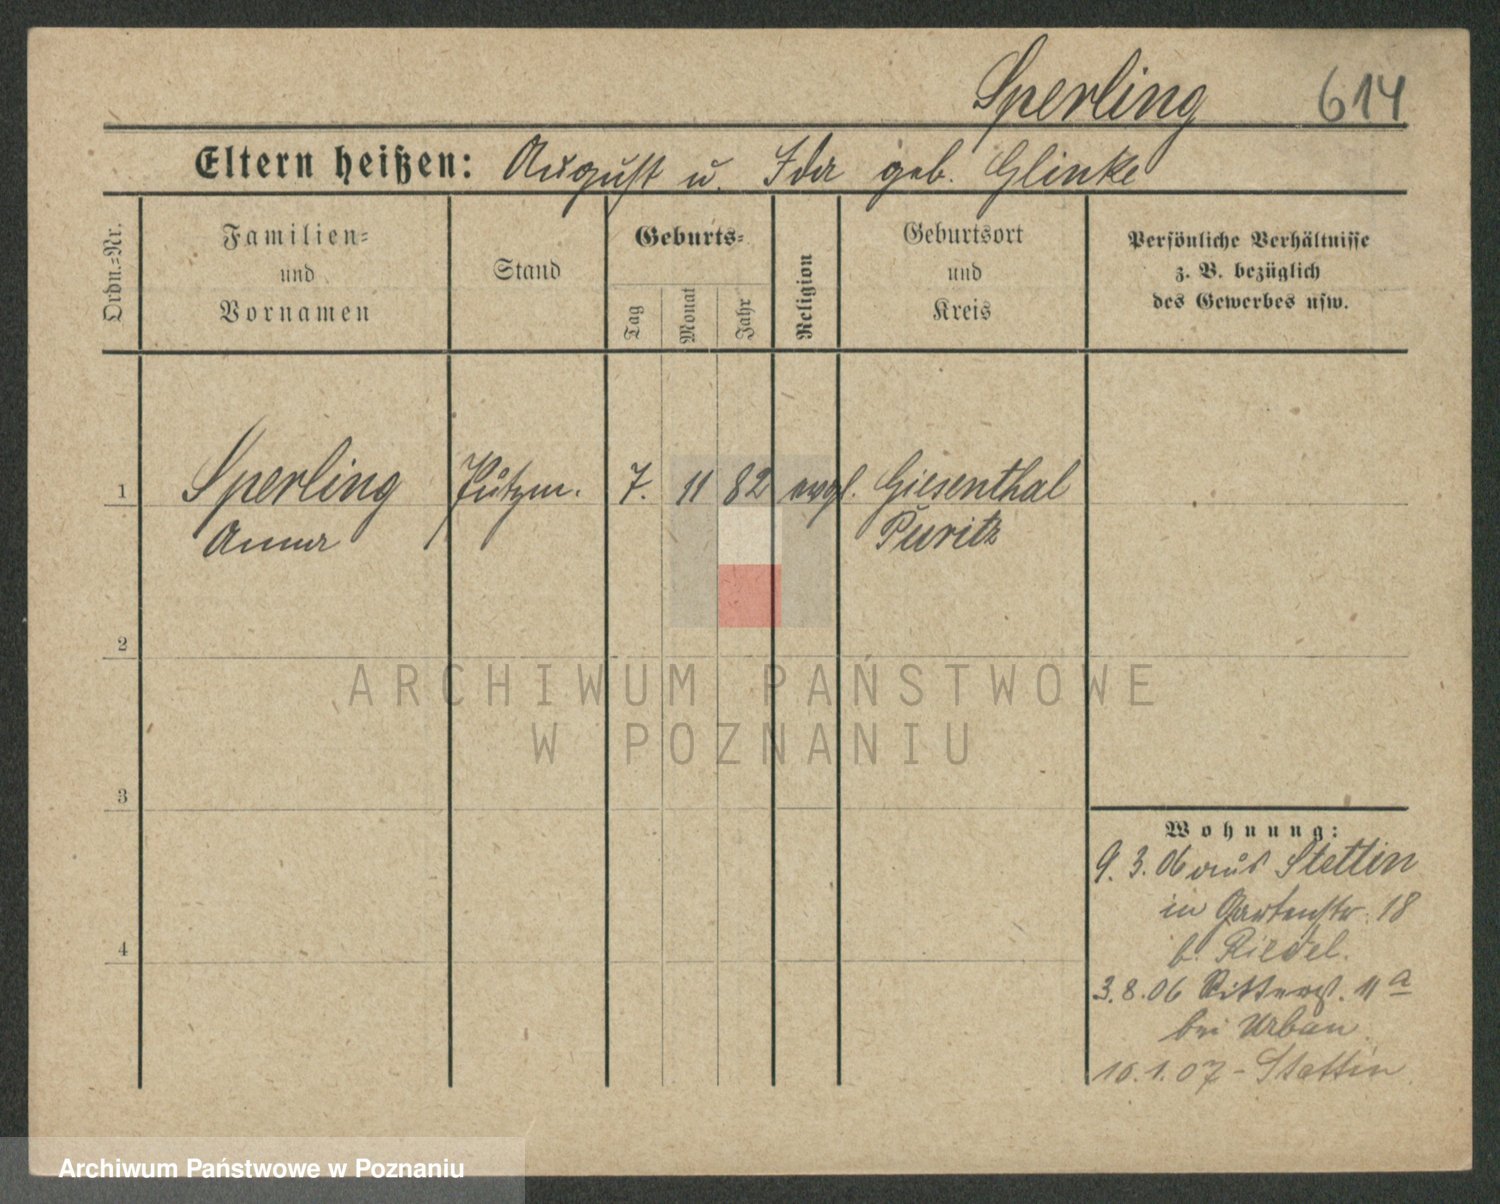 Sperling 614
Eltern heißen: August u. Ida geb. Glinke
Ordn.=Nr.
Familien=
und
Vornamen
Stand
Geburts=
Tag
Monat
Jahr
Religion
Geburtsort
und
Kreis
Persönliche Verhältnisse
z. B. bezüglich
des Gewerbes usw.
1 Sperling Putzm. 7. 11 82 evgl. Giesenthal
Anna Pyritz
2
3
4
Wohnung:
9. 3. 06 aus Stettin
in Gartenstr. 18
b. Riedel.
3. 8. 06 Ritterst. 11 a
bei Urban
10. 1. 07 - Stettin
ARCHIWUM PAŃSTWOWE
W POZNANIU
Archiwum Państwowe w Poznaniu